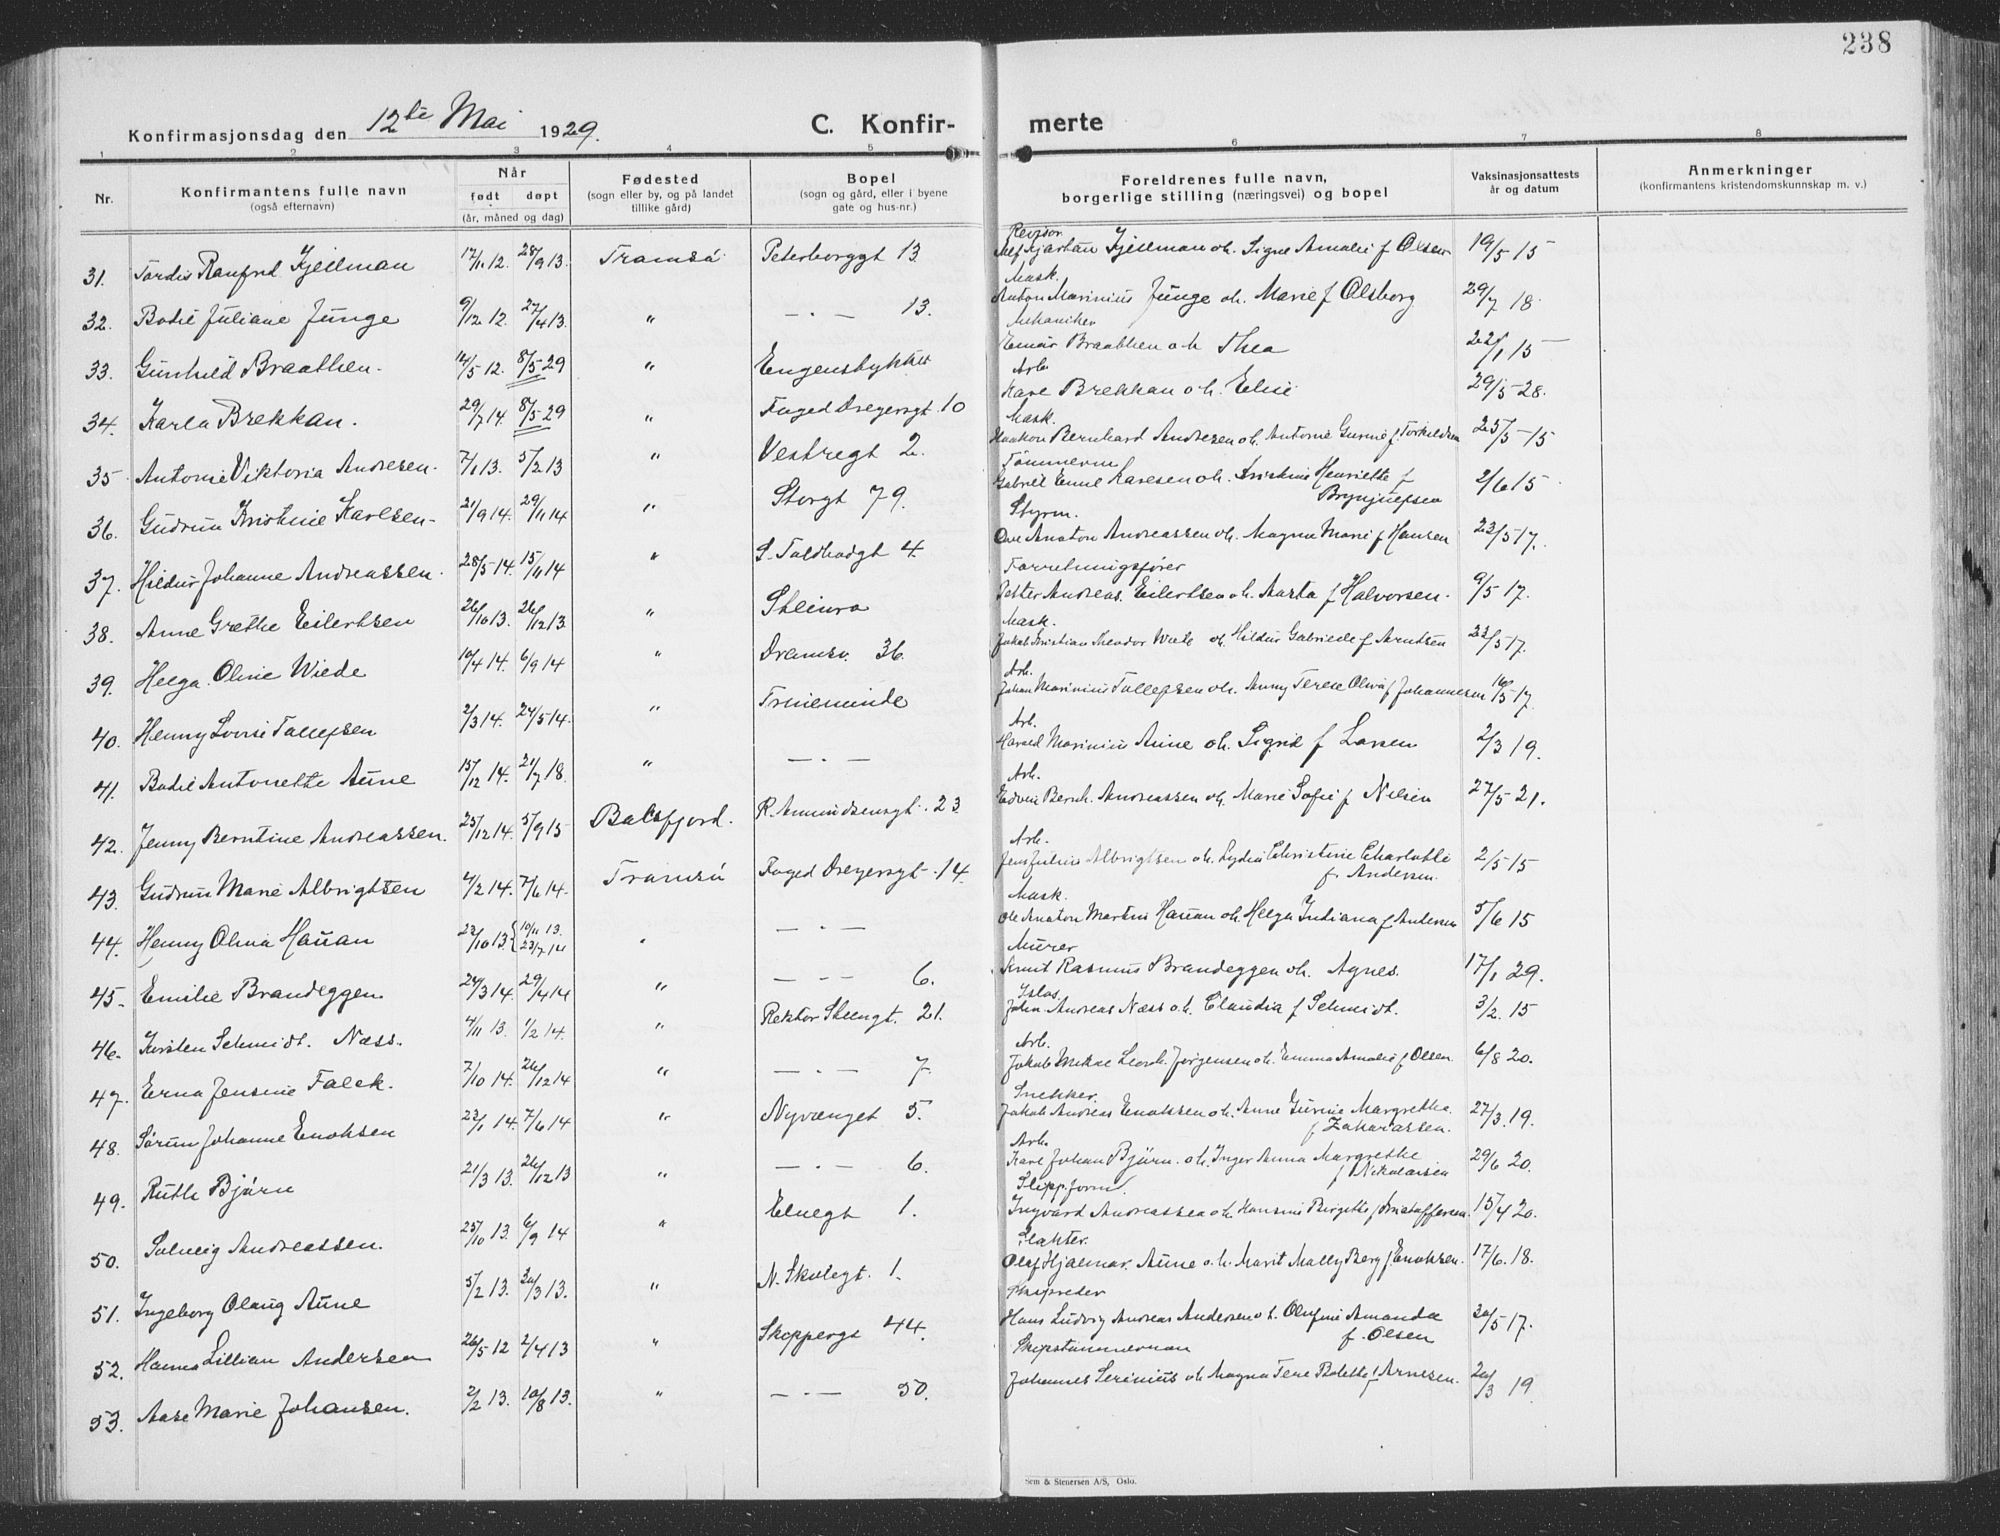 238
Konfirmasjonsdag den 12te Mai 1929.
C. Konfir- merte
1 2 3 4 5 6 7 8
Nr.
Konfirmantens fulle navn
(også efternavn)
Når
født døpt
(år, måned og dag)
Fødested
(sogn eller by, og på landet
tillike gård)
Bopel
(sogn og gård, eller i byene
gate og hus-nr.)
Foreldrenes fulle navn,
borgerlige stilling (næringsvei) og bopel
Vaksinasjonsattests
år og datum
Anmerkninger
(konfirmantens kristendomskunnskap m. v.)
Revisor
31. Tordis Ranfrid Kjellman 17/11.12. 28/9 13. Tromsö Peterborggt 13. Alf Kjartan Kjellman o h. Signe Amalie f Olsen 19/5 15
Mask.
32. Bodil Juliane Junge 9/12 12. 27/4 13. " — . — 13. Anton Marinius Junge oh. Marie f Olsborg 29/7 18.
Mekaniker
33. Gunhild Braathen. 14/5 12. 8/5 29 " Einar Braathen o h Thea 22/1 15
Arb.
34. Karla Brekkan. 29/7 14. 8/5 29 " Foged Dreyersgt. 10 Kare Brekkan o h. Elise 29/5-28.
Mask.
35 Antonie Viktoria Andresen. 7/1 13. 5/2 13 " Vestregt 2. Haakon Bernhard Andresen oh. Antonie Gurine f. Torkildsen 25/5-15
Tömmerm
36. Gudrun Kristine Karlsen 21/9 14. 29/11 14 " Storgt 79. Gabriel Emil Karlsen oh. Kristine Henriette f
Brynjulfsen 2/6 15
Styrm.
37. Hildur Johanne Andreassen. 28/5 14. 15/11 14 " S. Toldbodgt 4. Ole Anaton Andreassen oh. Magna Marie f Hansen 23/5 17.
Forretningsfører
38. Anne Grethe Eilertsen 26/10 13. 26/12 13 " Steinra Petter Andreas. Eilertsen oh. Aasta f Halvorsen. 9/5 17.
Mask.
39. Helga Oline Wiede 10/4 14. 6/9 14 " Dramsv. 36. Jakob Kristian Theodor Wiede oh. Hildur Gabriele f Arntsen 23/5 17.
Arb.
40. Henny Lovise Tollefsen 2/3 14. 24/5 14. " Trineminde Johan Marinius Tollefsen oh. Anny Terese Oliva f Johannesen 16/5 17.
Arb.
41. Bodil Antonette Aune 15/12 14. 21/7 18. " — . — Harald Marinius Aune oh. Sigrid f Larsen 2/3 19.
Arb.
42. Jenny Berntine Andreassen. 25/12 14. 5/9 15 Balsfjord. R. Amundsensgt. 23 Edvin Bernh. Andreassen oh. Marie Sofie f Nilsen 27/5-21.
Arb.
43. Gudrun Marie Albrigtsen 4/2 14. 7/6 14. Tromsö Foged Dreyersgt. 14. Jens Julius Albrigtsen oh. Lydia Christine Charlotte
f. Andersen. 2/5 15
Mask.
44. Henny Olivia Hauan 23/10 13 { 10/11 13. 23/7 14 " — . — Ole Anaton Martin Hauan oh. Helga Indiana f Andersen 5/6 15
Murer
45. Emilie Brandeggen 24/3 14. 29/4 14 " — . — 6. Knut Rasmus Brandeggen oh. Agnes. 17/1 29.
46. Kirsten Schmidt. Næss. 4/11 13. 1/2 14. " Rektor Steengt. 21. John Andreas Næss o.h. Claudia f Schmidt. 3/2. 15
Arb.
47. Erna Jensine Falck. 7/10 14. 26/12 14 " — . — 7. Jakob Mikal Leonh. Jørgensen oh. Emma Amalie f Olsen 6/8 20.
Snekker.
48. Sørun Johanne Enoksen 23/1 14. 7/6 14 " Nyvænget 5. Jakob Andreas Enoksen oh. Anne Gurine Margrethe
f Zakariassen. 27/3 19.
Arb.
49. Ruth Bjørn 21/3 13. 26/12 13 " — . — 6. Karl Johan Bjørn. oh. Inger Anna Margrethe
f Nikolaisen 29/6 20.
Slippform.
50. Solveig Andreassen. 25/10 13. 6/9 14 " Elvegt 1. Ingvard Andreassen oh. Hansine Birgitte f Kristoffersen. 15/4 20.
Slakter.
51. Ingeborg Olaug Aune 5/2 13. 30/3 13. " N. Skolegt. 1. Olaf Hjalmar. Aune o.h. Marit Molly Berg f Enoksen. 17/6. 18.
Skipsreder
52. Hanna Lillian Andersen 26/5 12 2/4 13 " Skippergt 44. Hans Ludvig Andreas Andersen o h. Olufine Amanda
f. Olsen 30/5 17.
Skipstømmerman
53. Aase Marie Johansen. 2/2 13. 10/8 13. " — . — 50. Johannes Serinius oh Magna Tene Bolette f Arnesen. 20/3 19.
Sem & Stenersen A/S, Oslo.